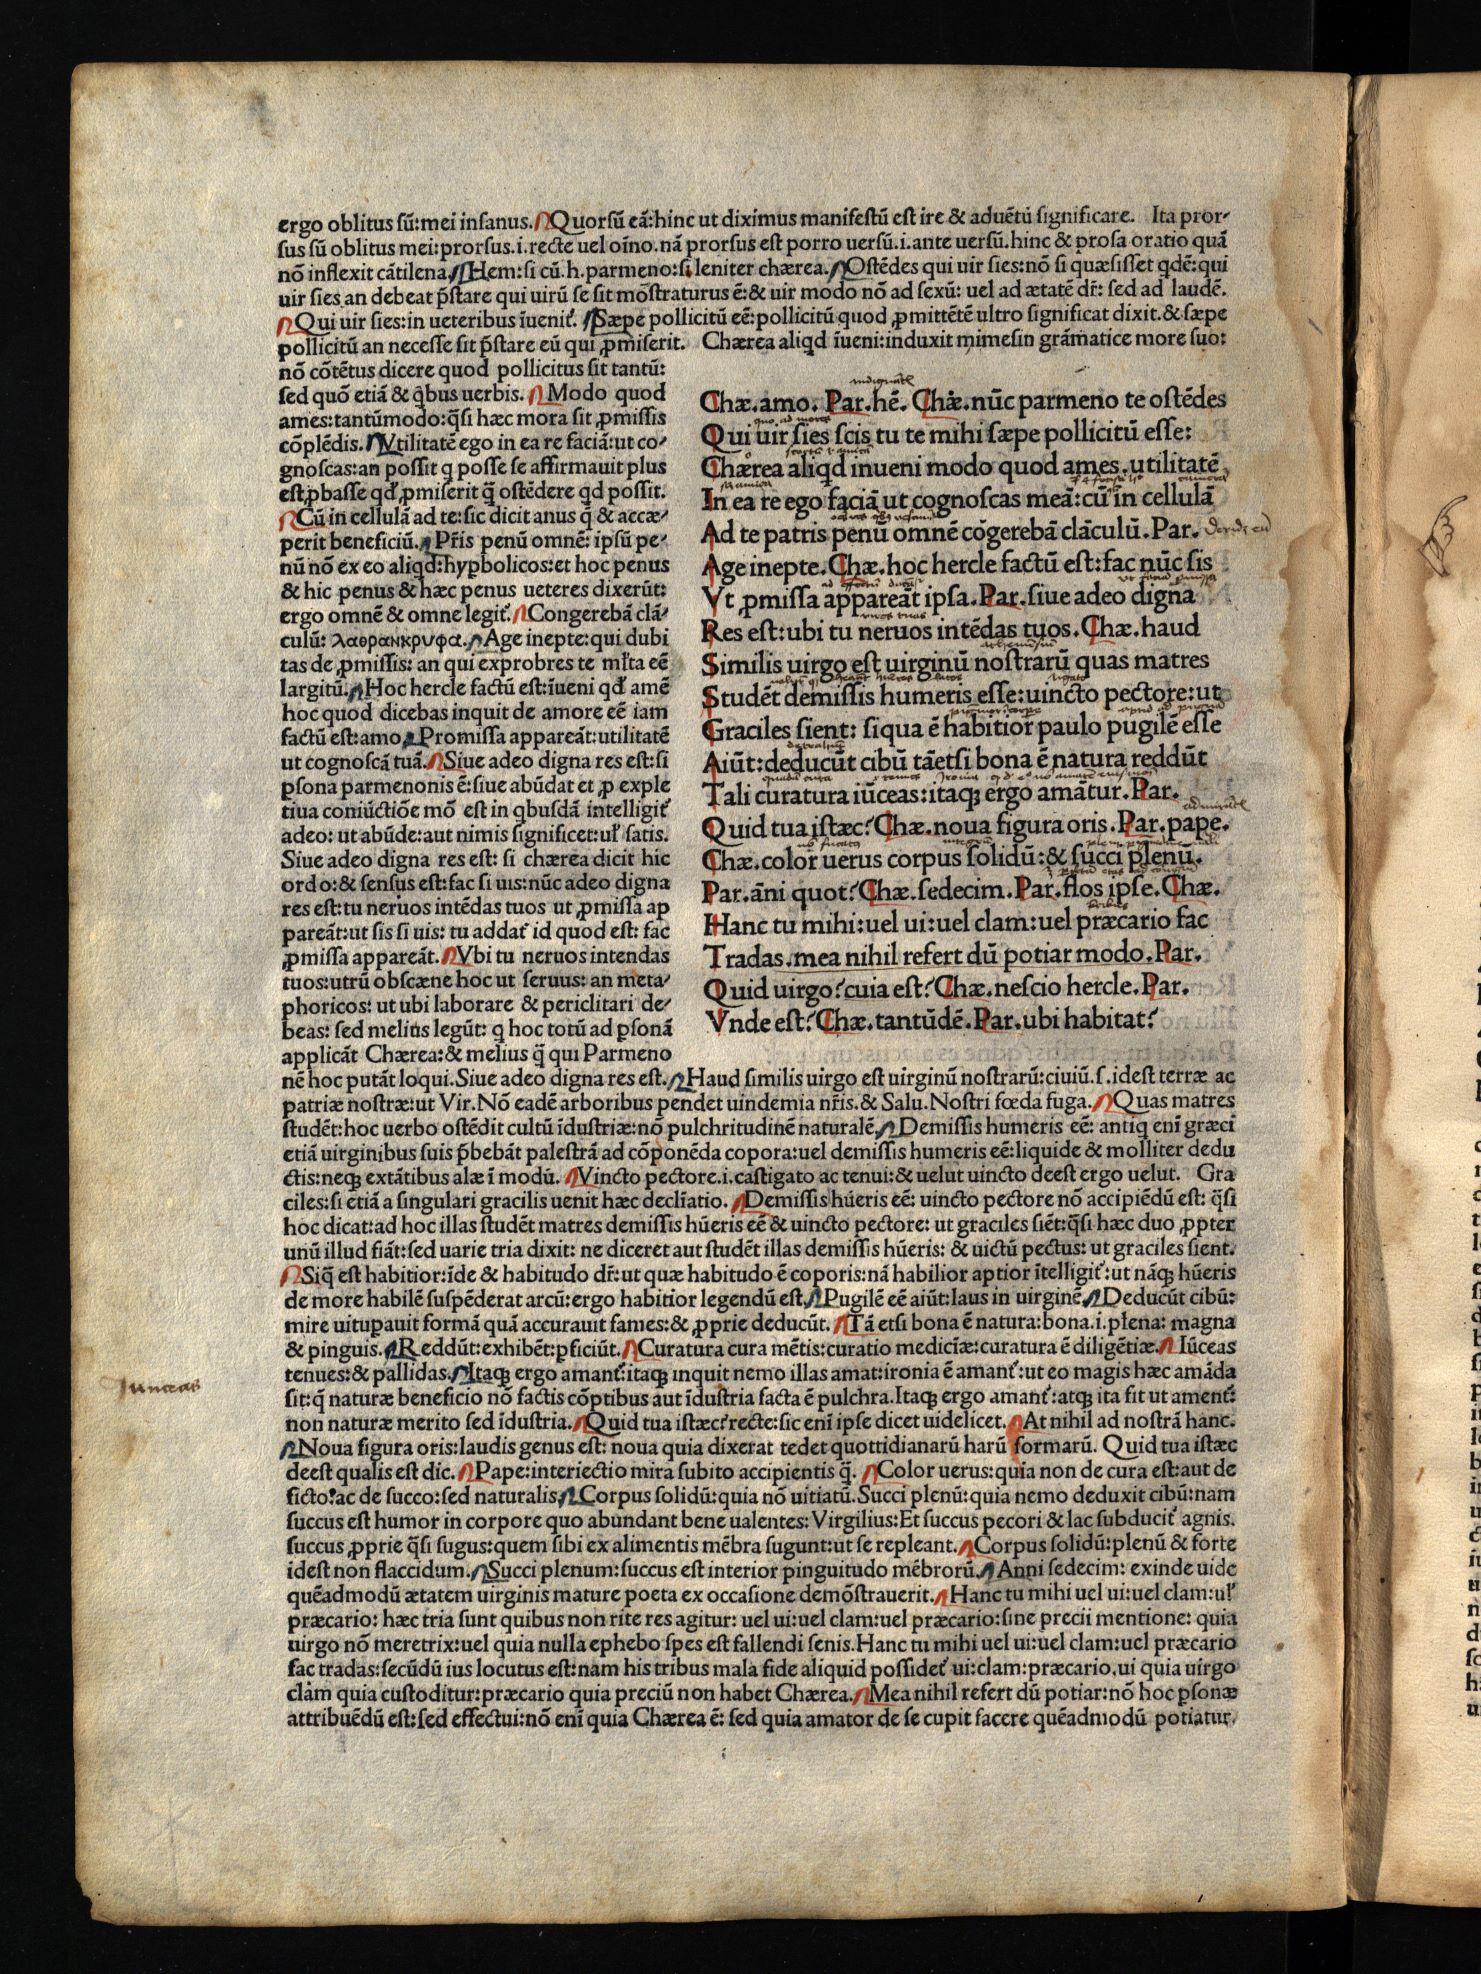 ergo oblitus sū:mei insanus. Quorsū eā:hinc ut diximus manifestū est ire & aduētū significare. Ita pror-
sus sū oblitus mei:prorsus.i.recte uel oīno.nā prorsus est porro uersū.i.ante uersū.hinc & prosa oratio quā
nō inflexit cātilena. Hem:si cū.h.parmeno:si leniter chærea. Ostēdes qui uir sies:nō si quæsisset qdē:qui
uir sies an debeat p̄stare qui uirū se sit mōstraturus ē:& uir modo nō ad sexū: uel ad ætatē dr̄: sed ad laudē.
Qui uir sies:in ueteribus īuenit᷑. Sæpe pollicitū eē:pollicitū quod ꝓmittētē ultro significat dixit.& sæpe
pollicitū an necesse sit p̄stare eū qui ꝓmiserit. Chærea aliqd īueni:induxit mimesin grāmatice more suo:
nō cōtētus dicere quod pollicitus sit tantū:
sed quō etiā & q̄bus uerbis. Modo quod
ames:tantūmodo:q̄si hæc mora sit ꝓmissis
cōplēdis. Vtilitatē ego in ea re faciā:ut co-
gnoscas:an possit q posse se affirmauit plus
est ꝓbasse qd ꝓmiserit q̄ ostēdere qd possit.
Cū in cellulā ad te:sic dicit anus q̄ & accæ-
perit beneficiū. Pr̄is penū omnē: ipsū pe-
nū nō ex eo aliqd:hyꝑbolicos:et hoc penus
& hic penus & hæc penus ueteres dixerūt:
ergo omnē & omne legit᷑. Congerebā clā-
culū: λαθρανκρυφα. Age inepte:qui dubi
tas de ꝓmissis: an qui exprobres te mr̄ta eē
largitū. Hoc hercle factū est:īueni qd amē
hoc quod dicebas inquit de amore eē iam
factū est:amo. Promissa appareāt:utilitatē
ut cognoscā tuā. Siue adeo digna res est:si
ꝑsona parmenonis ē:siue abūdat et ꝓ exple
tiua coniūctiōe mō est in qbusdā intelligit᷑
adeo: ut abūde:aut nimis significet:ul satis.
Siue adeo digna res est: si chærea dicit hic
ordo:& sensus est:fac si uis:nūc adeo digna
res est:tu neruos intēdas tuos ut ꝓmissa ap
pareāt:ut sis si uis: tu addat᷑ id quod est: fac
ꝓmissa appareāt. Vbi tu neruos intendas
tuos:utrū obscæne hoc ut seruus: an meta-
phoricos: ut ubi laborare & periclitari de-
beas: sed melius legūt: q hoc totū ad ꝑsonā
applicāt Chærea:& melius q̄ qui Parmeno
Chæ.amo. Par.hē. Chæ.nūc parmeno te ostēdes
Qui uir sies scis tu te mihi sæpe pollicitū esse:
Chærea aliqd inueni modo quod ames.utilitatē
In ea re ego faciā ut cognoscas meā:cū in cellulā
Ad te patris penū omnē cōgerebā clāculū.Par.
Age inepte.Chæ.hoc hercle factū est:fac nūc sis
Vt ꝓmissa appareāt ipsa.Par.siue adeo digna
Res est:ubi tu neruos intēdas tuos.Chæ.haud
Similis uirgo est uirginū nostrarū quas matres
Studēt demissis humeris esse:uincto pectore:ut
Graciles sient: siqua ē habitior paulo pugilē esse
Aiūt:deducūt cibū tāetsi bona ē natura reddūt
Tali curatura iūceas:itaqꝫ ergo amātur.Par.
Quid tua istæc? Chæ.noua figura oris.Par.pape.
Chæ.color uerus corpus solidū:& succi plenū.
Par.āni quot? Chæ.sedecim.Par.flos ipse.Chæ.
Hanc tu mihi:uel ui:uel clam:uel præcario fac
Tradas.mea nihil refert dū potiar modo.Par.
Quid uirgo?cuia est? Chæ.nescio hercle.Par.
Vnde est? Chæ.tantūdē.Par.ubi habitat?
nē hoc putāt loqui.Siue adeo digna res est. Haud similis uirgo est uirginū nostrarū:ciuiū.s.idest terræ ac
patriæ nostræ:ut Vir.Nō eadē arboribus pendet uindemia nr̄is.& Salu.Nostri fœda fuga. Quas matres
studēt:hoc uerbo ostēdit cultū īdustriæ:nō pulchritudinē naturalē. Demissis humeris eē: antiq enī græci
etiā uirginibus suis p̄bebāt palestrā ad cōponēda copora:uel demissis humeris eē:liquide & molliter dedu
ctis:neqꝫ extātibus alæ ī modū. Vincto pectore.i.castigato ac tenui:& uelut uincto deest ergo uelut. Gra
ciles:si etiā a singulari gracilis uenit hæc declīatio. Demissis hūeris eē: uincto pectore nō accipiēdū est: q̄si
hoc dicat:ad hoc illas studēt matres demissis hūeris eē & uincto pectore: ut graciles siēt:q̄si hæc duo ꝓpter
unū illud fiāt:sed uarie tria dixit: ne diceret aut studēt illas demissis hūeris: & uictū pectus: ut graciles sient.
Siq̄ est habitior:īde & habitudo dr̄:ut quæ habitudo ē coporis:nā habilior aptior ītelligit᷑:ut nāqꝫ hūeris
de more habilē suspēderat arcū:ergo habitior legendū est. Pugilē eē aiūt:laus in uirginē. Deducūt cibū:
mire uituꝑauit formā quā accurauit fames:& ꝓprie deducūt. Tā etsi bona ē natura:bona.i.plena: magna
& pinguis. Reddūt:exhibēt:ꝑficiūt. Curatura cura mētis:curatio mediciæ:curatura ē diligētiæ. Iūceas
tenues:& pallidas. Itaqꝫ ergo amant᷑:itaqꝫ inquit nemo illas amat:ironia ē amant᷑:ut eo magis hæc amāda
sit:q̄ naturæ beneficio nō factis cōptibus aut īdustria facta ē pulchra.Itaqꝫ ergo amant᷑:atqꝫ ita fit ut ament᷑:
non naturæ merito sed īdustria. Quid tua istæc? recte:sic enī ipse dicet uidelicet. At nihil ad nostrā hanc.
Noua figura oris:laudis genus est: noua quia dixerat tedet quottidianarū harū formarū. Quid tua istæc
deest qualis est dic. Pape:interiectio mira subito accipientis q̄. Color uerus:quia non de cura est:aut de
ficto:ac de succo:sed naturalis. Corpus solidū:quia nō uitiatū.Succi plenū:quia nemo deduxit cibū:nam
succus est humor in corpore quo abundant bene ualentes: Virgilius:Et succus pecori & lac subducit᷑ agnis.
succus ꝓprie q̄si sugus:quem sibi ex alimentis mēbra sugunt:ut se repleant. Corpus solidū:plenū & forte
idest non flaccidum. Succi plenum:succus est interior pinguitudo mēbrorū. Anni sedecim: exinde uide
quēadmodū ætatem uirginis mature poeta ex occasione demōstrauerit. Hanc tu mihi uel ui:uel clam:ul
præcario: hæc tria sunt quibus non rite res agitur: uel ui:uel clam:uel præcario:sine precii mentione: quia
uirgo nō meretrix:uel quia nulla ephebo spes est fallendi senis.Hanc tu mihi uel ui:uel clam:uel præcario
fac tradas:secūdū ius locutus est:nam his tribus mala fide aliquid possidet᷑ ui:clam:præcario.ui quia uirgo
clam quia custoditur:præcario quia preciū non habet Chærea. Mea nihil refert dū potiar:nō hoc ꝑsonæ
attribuēdū est:sed effectui:nō enī quia Chærea ē: sed quia amator de se cupit facere quēadmodū potiatur.
Junceas